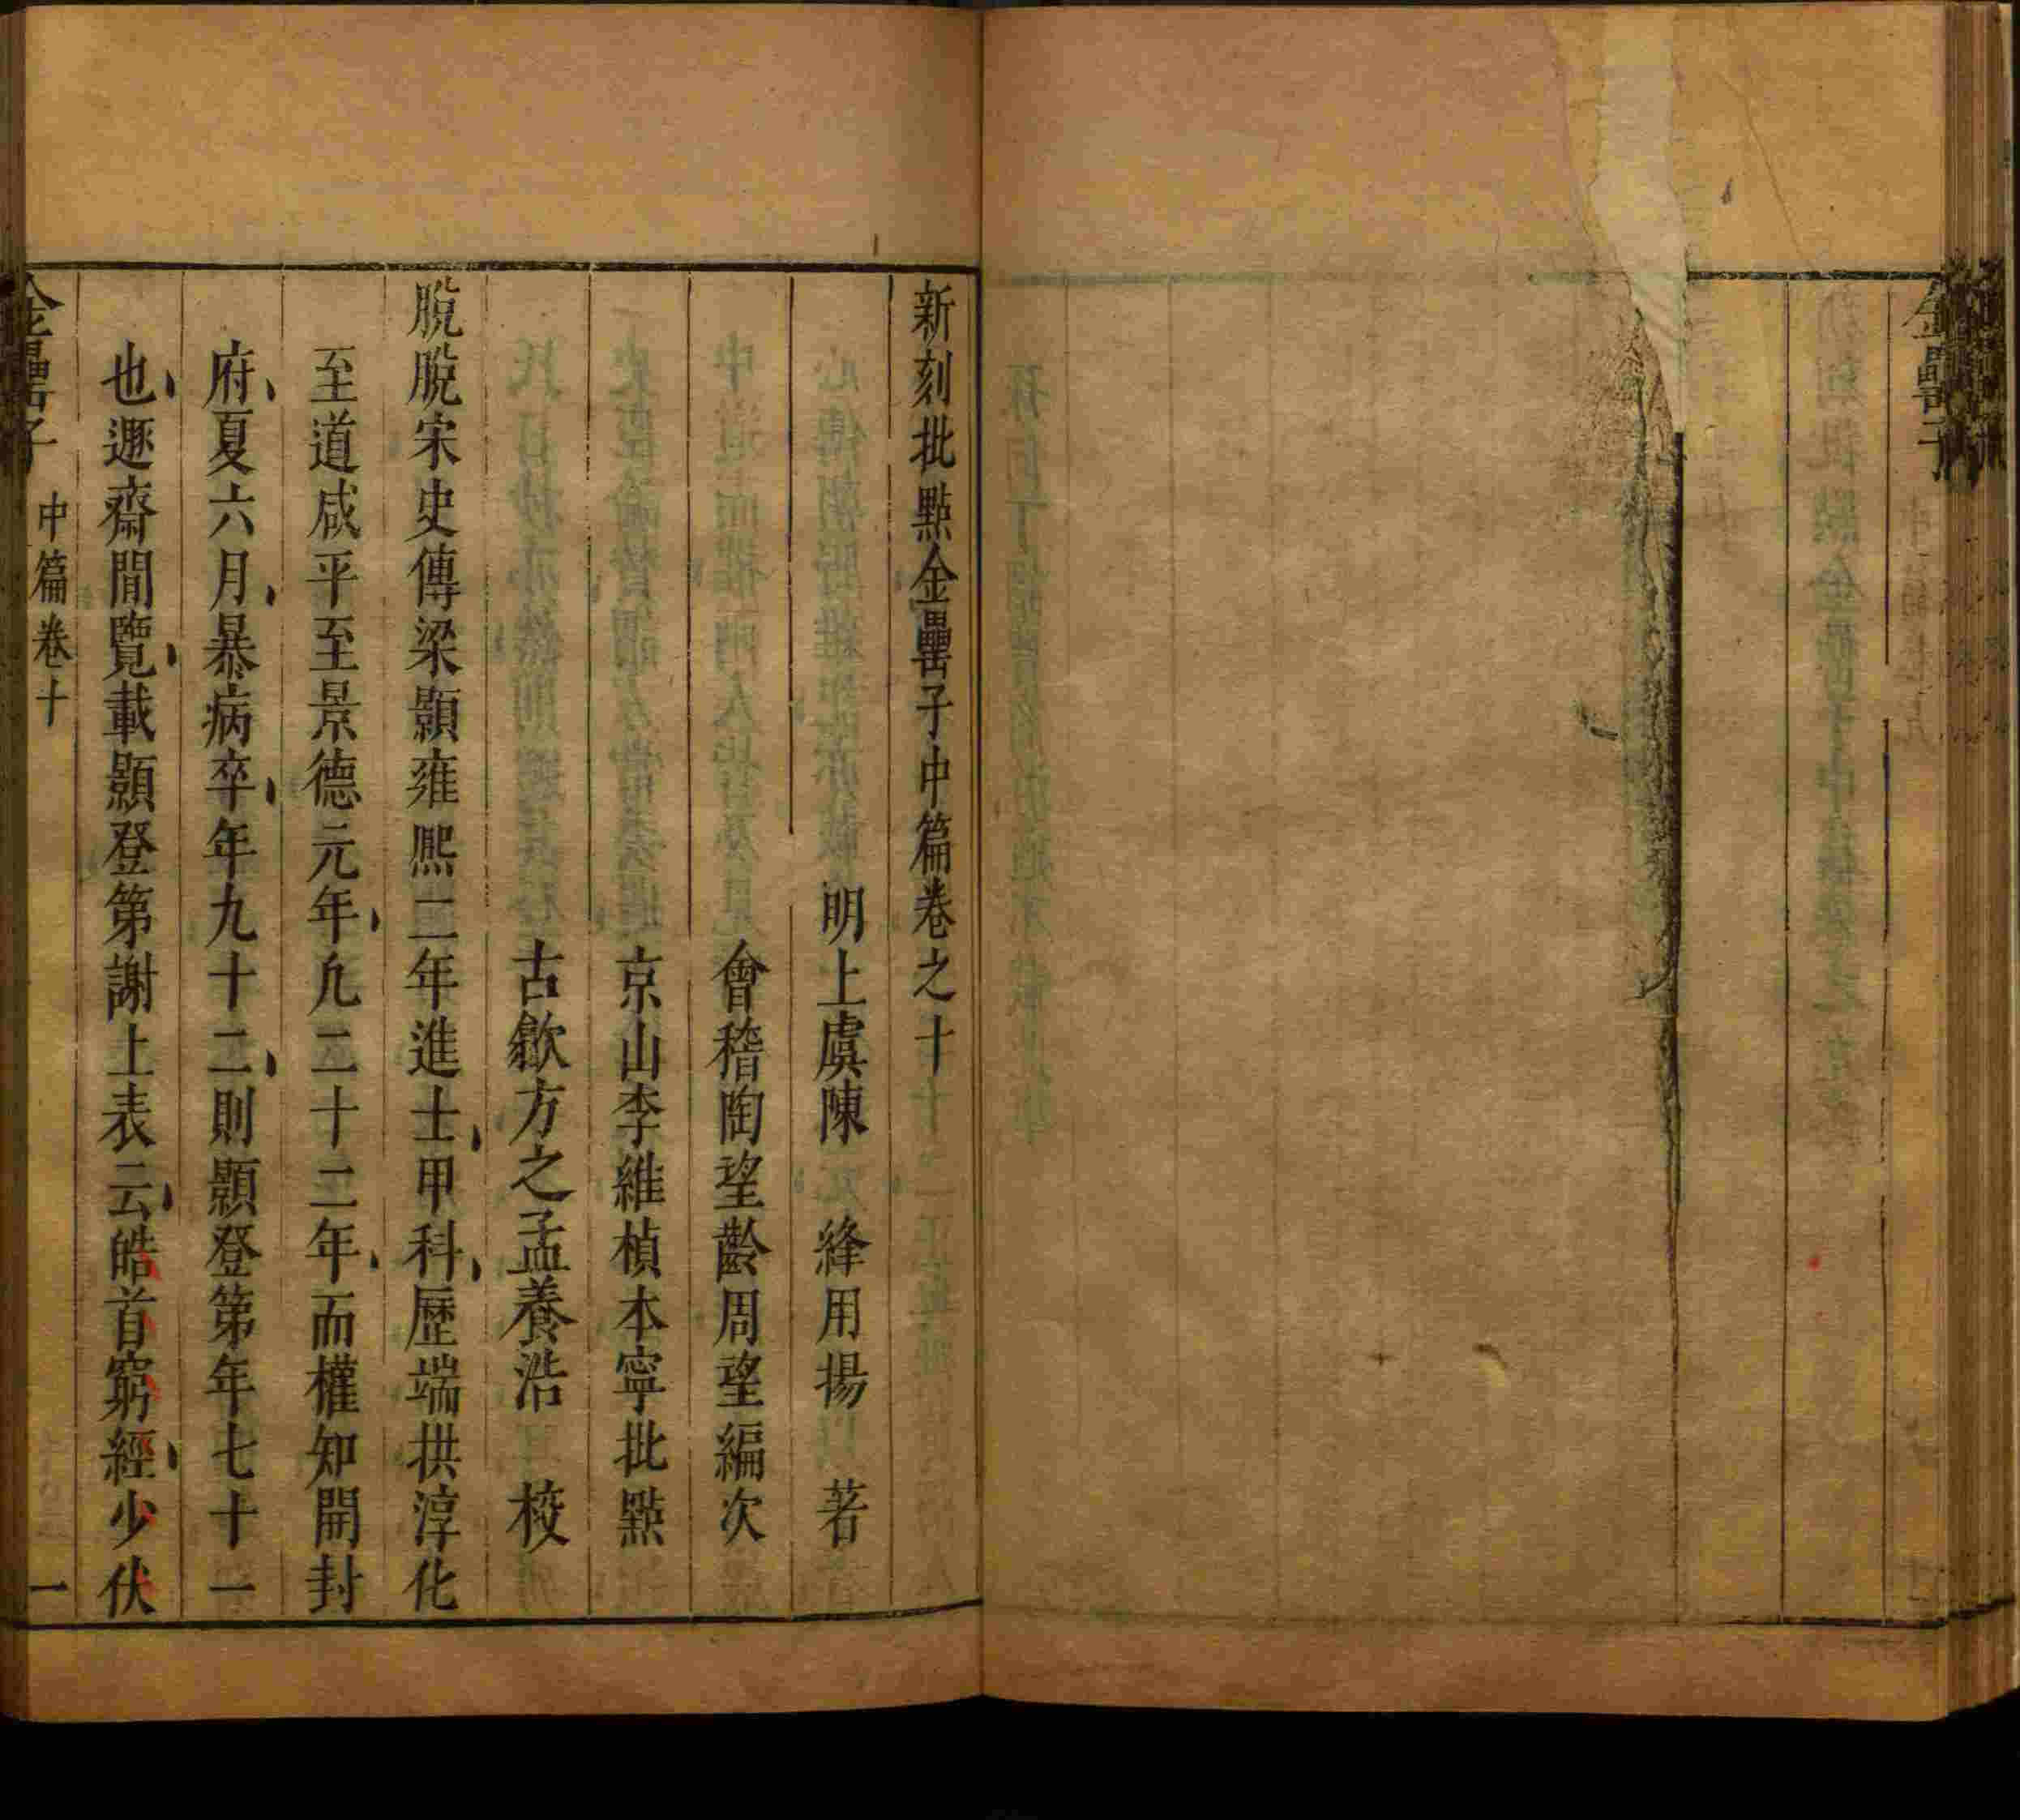 金罍子
新刻批點金罍子中篇卷之十
明上虞陳絳用揚著
會稽陶望齡周望編次
京山李維楨本寧批點
古歙方之孟養浩校
脫脫宋史傳梁顥雍熙二年進士甲科歷端拱淳化
至道咸平至景德元年凡二十二年而權知開封
府夏六月暴病卒年九十二則顥登第年七十一
也遯齋閒覽載顥登第謝上表云皓首窮經少伏
金罍子 中篇卷十 一